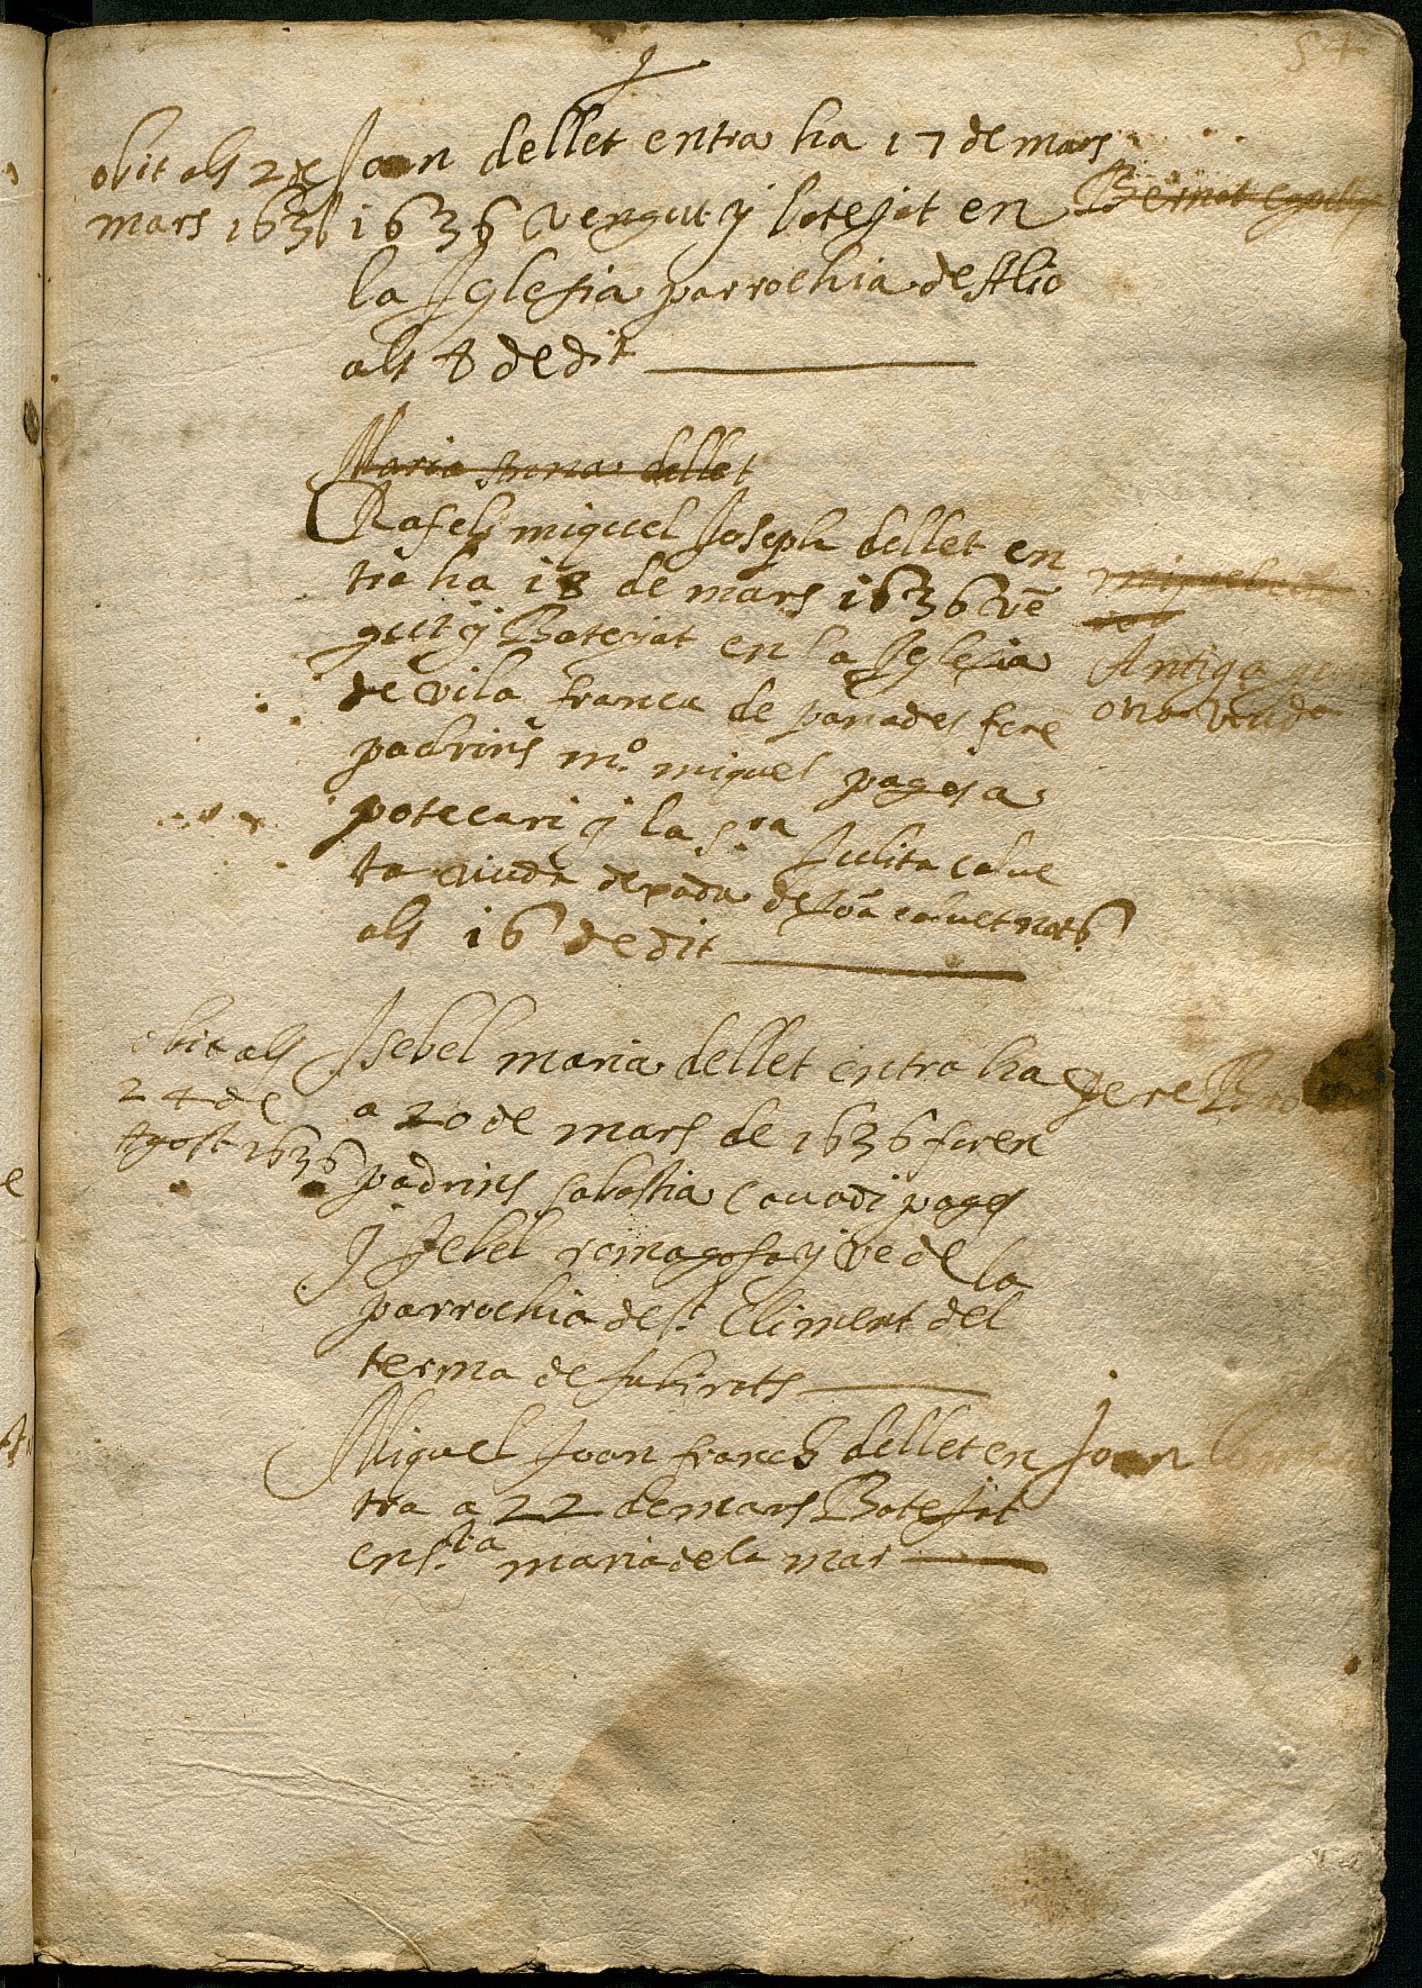 54
obit als 2x
mars 1636
Joan dellet entra ha 17 de mars
1636 vengut y botejat en
la Iglesia parrochia de Alio
als 8 de dit
Bernat
Maria dellet
Rafel miquel Joseph dellet en
tra ha 18 de mars 1636 vē
gut y Botejat en la Iglesia
de vila franca de panades fore
padrins mº miquel pages a
potecari y la s.ra Julita calve
ta viuda dexada de Joā calvet
als 16 de dit
miquel
Antiga
ona viuda
obit als
24 de
Agost 1636
Isebel maria dellet entra ha
a 20 de mars de 1636 foren
padrins sabastia Cavadi pages
y Isebel romagosa y ve de la
parrochia de s.t Climent del
terma de subirats
Pere
Miquel Joan franch dellet en
tra a 22 de mars Botejat
en s.ta maria de la mar
Joan